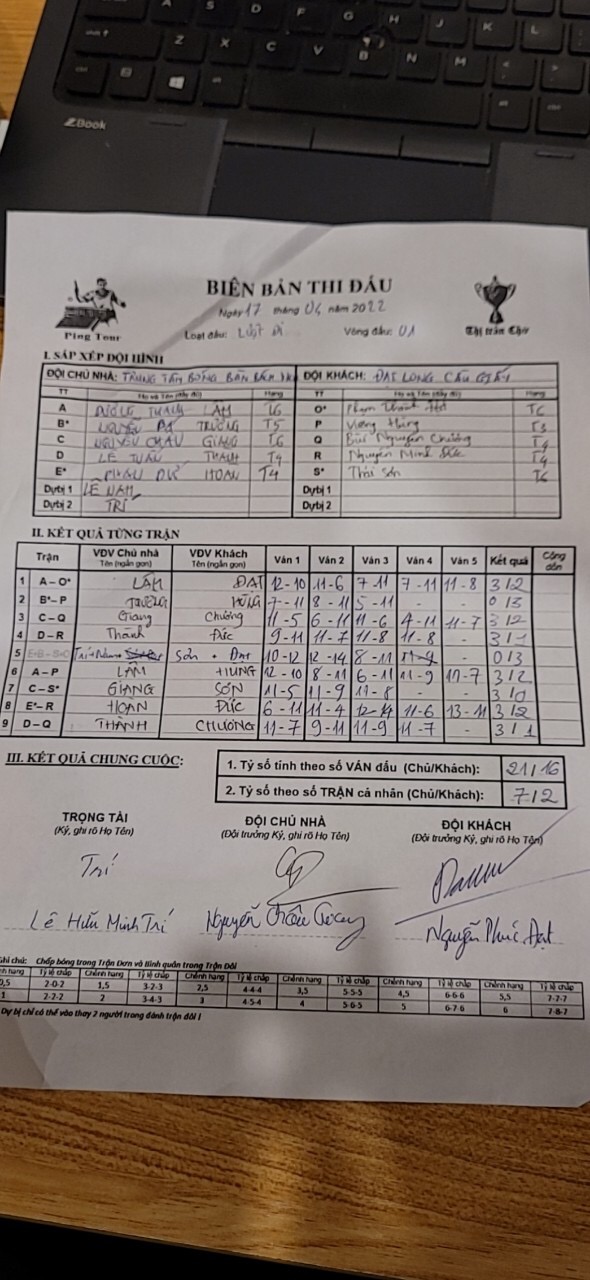 A S D F G H J K L
Z X C V B N M
ZBook
BIÊN BẢN THI ĐẤU
Ngày 17 tháng 04 năm 2022
Ping Tour
Loại đấu: Lượt Đi Vòng đấu: 01
Thị trấn Chờ
I. SẮP XẾP ĐỘI HÌNH
ĐỘI CHỦ NHÀ: TRUNG TÂM BÓNG BÀN ĐỘI KHÁCH: ĐẠT LONG CẦU GIẤY
TT Họ và Tên (đầy đủ) Hạng TT Họ và Tên (đầy đủ) Hạng
A THANH LÂM T6 O* Phạm T6
B* NGUYỄN TRƯỜNG T5 P Vương Hùng T3
C NGUYỄN CHÂU GIANG T6 Q Bùi Nguyên Chương T4
D LÊ TUẤN THÀNH T4 R Nguyễn Minh Đức T4
E* HOAN T4 S* Thái Sơn T6
Dự bị 1 LÊ NAM Dự bị 1
Dự bị 2 TRÍ Dự bị 2
II. KẾT QUẢ TỪNG TRẬN
Trận VĐV Chủ nhà Tên (ngắn gọn) VĐV Khách Tên (ngắn gọn) Ván 1 Ván 2 Ván 3 Ván 4 Ván 5 Kết quả Cộng dồn
1 A – O* LÂM ĐẠT 12-10 11-6 7-11 7-11 11-8 3/2
2 B*– P TRƯỜNG HÙNG 7-11 8-11 5-11 - - 0/3
3 C – Q Giang Chương 11-5 6-11 11-6 4-11 11-7 3/2
4 D – R Thành Đức 9-11 11-7 11-8 11-8 - 3/1
5 Trí+Nam Sơn + Đạt 10-12 12-14 8-11 - 0/3
6 A – P LÂM HÙNG 12-10 8-11 6-11 11-9 3/2
7 C – S* GIANG SƠN 11-5 11-9 11-8 - - 3/0
8 E*– R HOAN ĐỨC 6-11 11-4 12-14 11-6 13-11 3/2
9 D – Q THÀNH CHƯƠNG 11-7 9-11 11-9 11-7 - 3/1
III. KẾT QUẢ CHUNG CUỘC:
1. Tỷ số tính theo số VÁN đấu (Chủ/Khách): 21/16
2. Tỷ số theo số TRẬN cá nhân (Chủ/Khách): 7/2
TRỌNG TÀI ĐỘI CHỦ NHÀ ĐỘI KHÁCH
(Ký, ghi rõ Họ Tên) (Đội trưởng Ký, ghi rõ Họ Tên) (Đội trưởng Ký, ghi rõ Họ Tên)
Trí
Lê Hữu Minh Trí Nguyễn Châu Giang Nguyễn Phúc Đạt
Ghi chú: Chấp bóng trong Trận Đơn và Bình quân trong Trận Đôi
Chênh hạng Tỷ lệ chấp Chênh hạng Tỷ lệ chấp Chênh hạng Tỷ lệ chấp Chênh hạng Tỷ lệ chấp Chênh hạng Tỷ lệ chấp Chênh hạng Tỷ lệ chấp
0,5 2-0-2 1,5 3-2-3 2,5 4-4-4 3,5 5-5-5 4,5 6-6-6 5,5 7-7-7
1 2-2-2 2 3-4-3 3 4-5-4 4 5-6-5 5 6-7-6 6 7-8-7
Dự bị chỉ có thể vào thay 2 người trong đánh trận đôi !